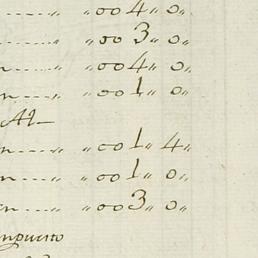 „ 004„ 0„
„ 003„ 0„
„ 004„ 0„
„ 001„ 0„
Al
„ 001„ 4„
„ 001„ 0„
„ 003„ 0„
mpuesto